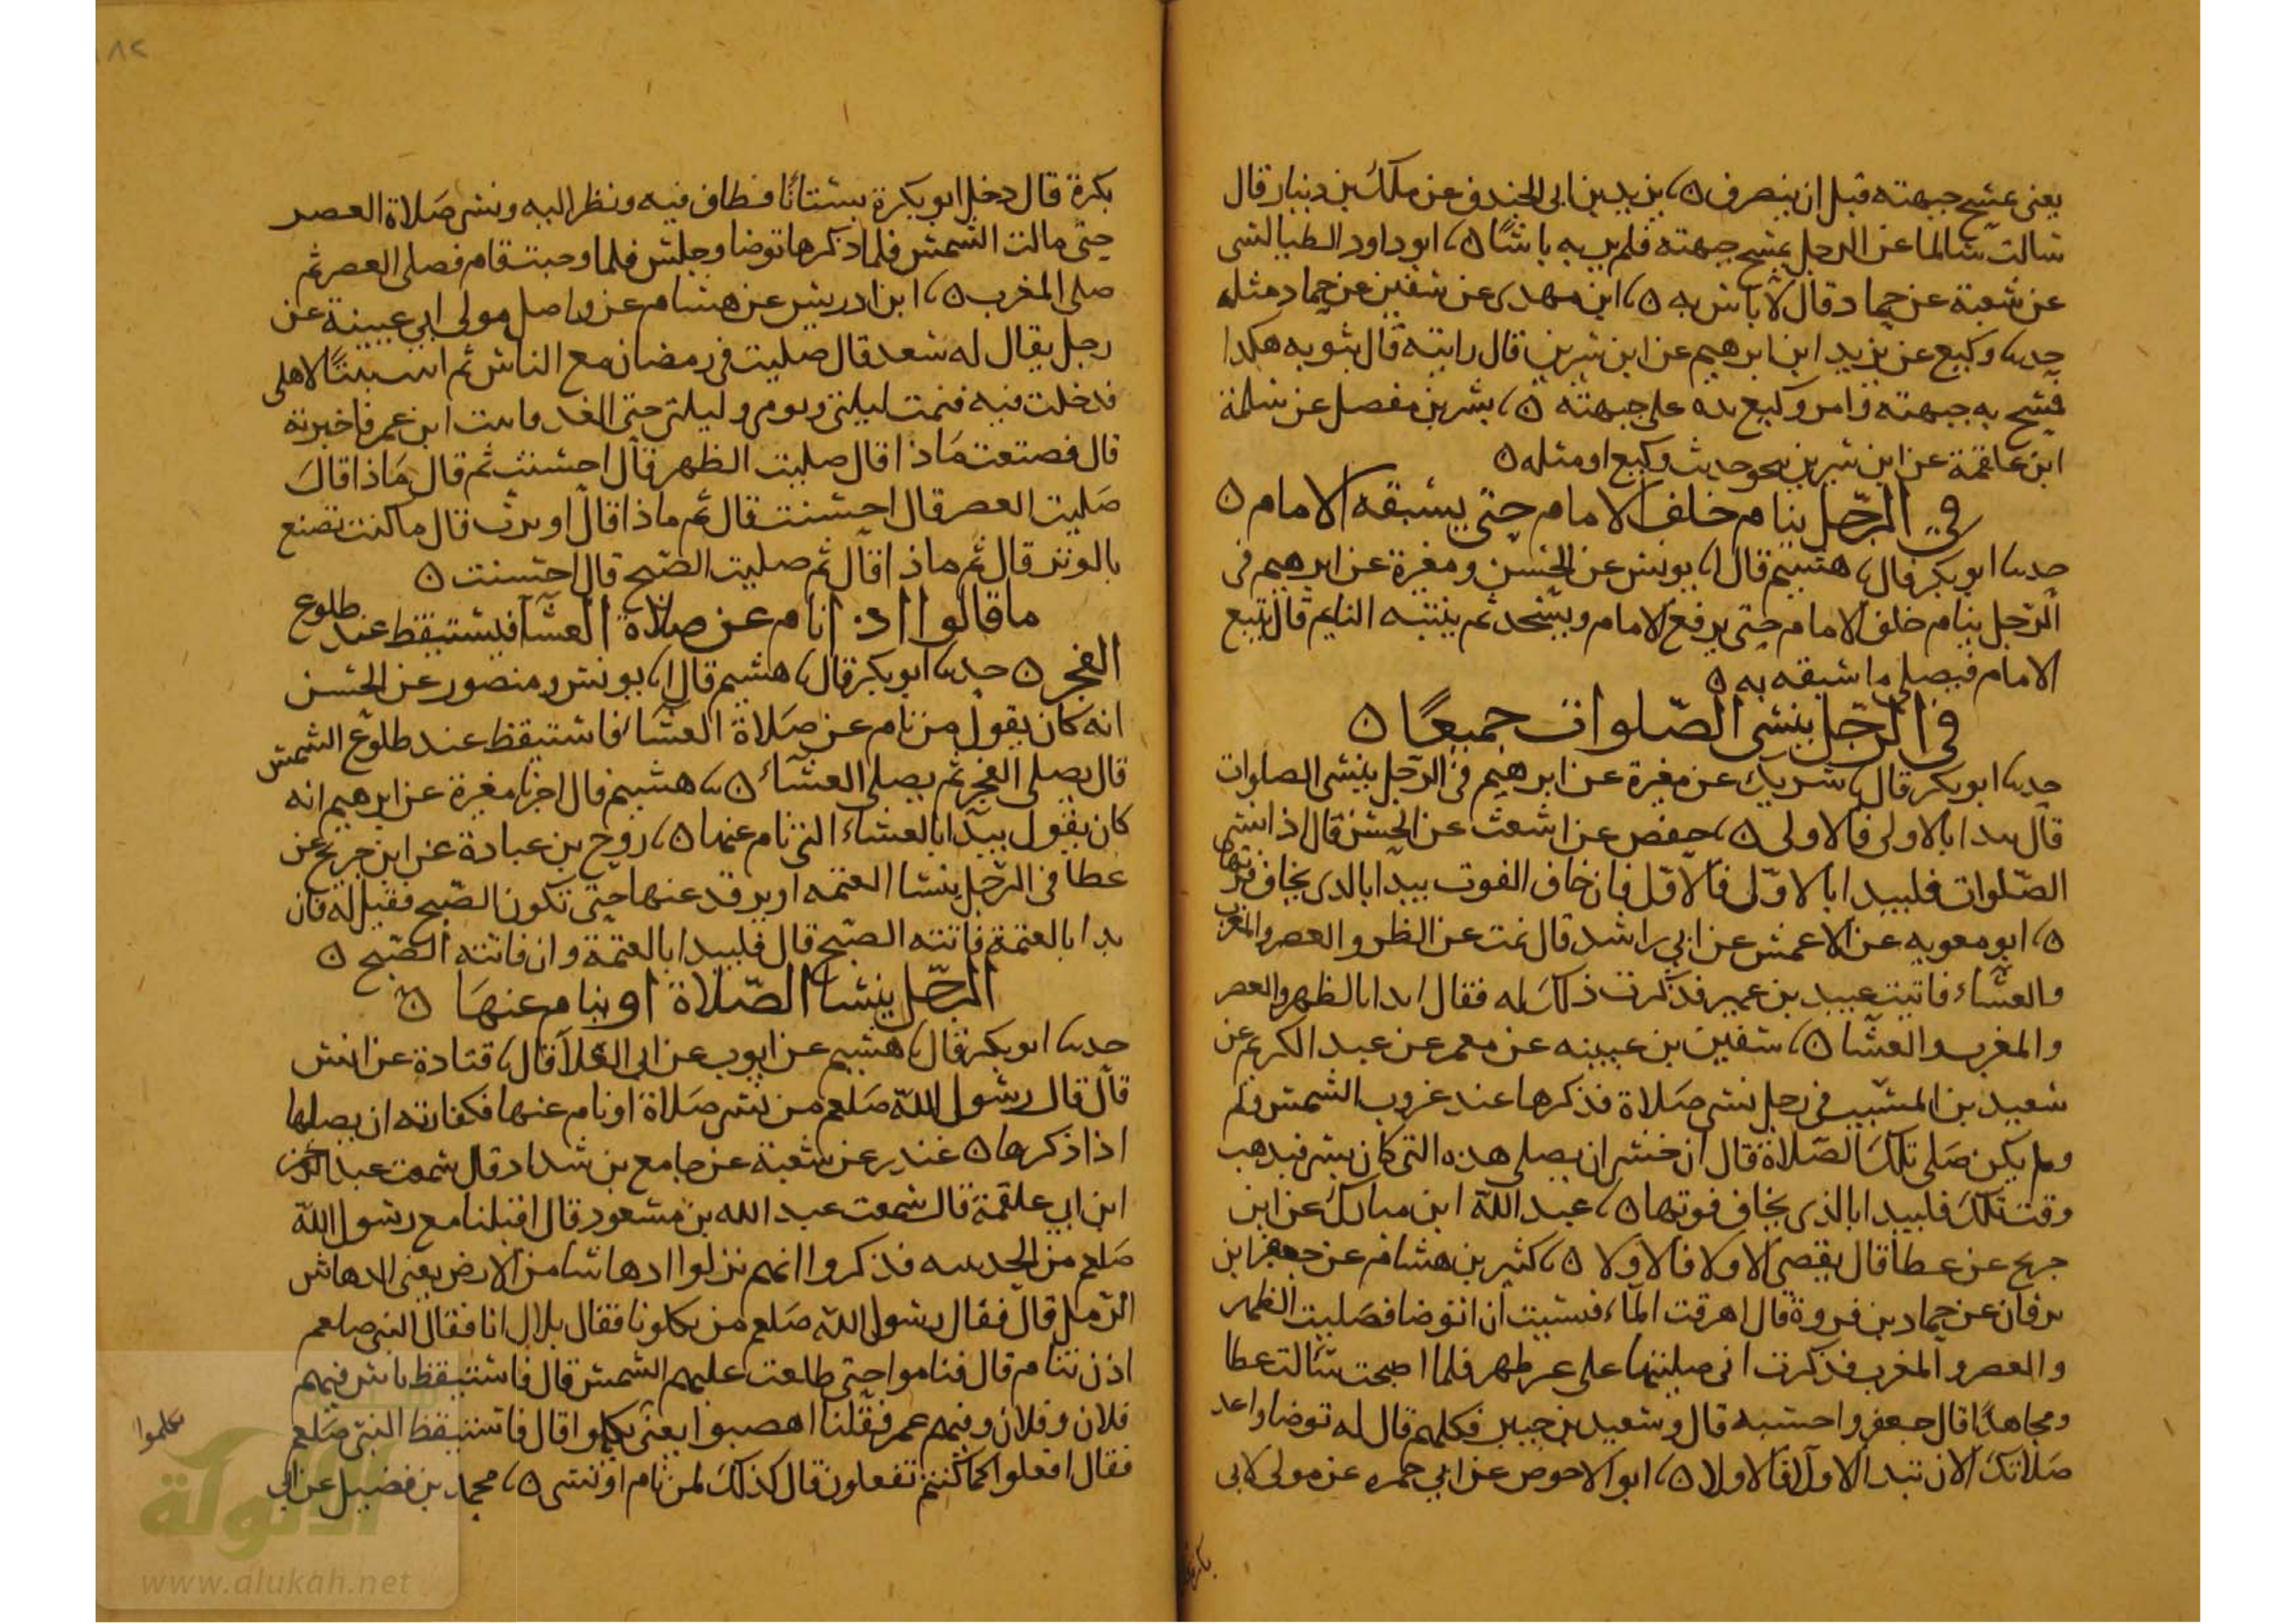 يعنى يمسح جبهته قبل ان ينصرف ۞ ثنا يزيد بن ابى الخندف عن ملك بن دينار قال
سالت سالما عن الرجل يمسح جبهته فلم ير به باسًا ۞ ثنا ابو داود الطيالسى
عن شعبة عن حماد قال لا باس به ۞ ثنا ابن مهدى عن سفين عن حماد مثله
حدثنا وكيع عن يزيد ابن ابرهيم عن ابن سيرين قال رايته قال بثوبه هكذا
فمسح به جبهته وامر وكيع يده على جبهته ۞ ثنا بشر بن مفضل عن سلمة
ابن علقمة عن ابن سيرين نحو حديث وكيع او مثله ۞
في الرجل ينام خلف الامام حتى يسبقه الامام ۞
حدثنا ابو بكر قال ثنا هشيم قال انا يونس عن الحسن ومغيرة عن ابرهيم فى
الرجل ينام خلف الامام حتى يرفع الامام ويسجد ثم ينتبه النايم قال يتبع
الامام فيصلى ما سبقه به ۞
في الرجل ينسى الصلوات جميعًا ۞
حدثنا ابو بكر قال ثنا شريك عن مغيرة عن ابرهيم فى الرجل ينسى الصلوات
قال يبدا بالاولى فالاولى ۞ ثنا حفص عن اشعث عن الحسن قال اذا نسى
الصلوات فليبدا بالاول فالاول فان خاف الفوت يبدا بالذى يخاف فوتها
۞ ثنا ابو معويه عن الاعمش عن ابى راشد قال نمت عن الظهر والعصر والمغرب
والعشاء فاتيت عبيد بن عمير فذكرت ذلك له فقال ابدا بالظهر والعصر
والمغرب والعشا ۞ ثنا سفين بن عيينه عن معمر عن عبد الكريم عن
سعيد بن المسيب فى رجل نسى صلاة فذكرها عند غروب الشمس
ولم يكن صلى تلك الصلاة قال ان خشى ان يصلى هذه التى كان نسى فيذهب
وقت تلك فليبدا بالذى يخاف فوتها ۞ ثنا عبد الله ابن مبارك عن ابن
جريج عن عطا قال يقضى الاولا فالاولا ۞ ثنا كثير بن هشام عن جعفر ابن
برقان عن حماد بن فروة قال اهرقت الماء فنسيت ان اتوضا فصليت الظهر
والعصر والمغرب فذكرت انى صليتها على غير طهر فلما اصبحت سالت عطا
ومجاهدًا قال جعفر واحسبه قال وسعيد بن جبير فكلهم قال له توضا واعد
صلاتك الان تبدا الاولا فالاولا ۞ ثنا ابو الاحوص عن ابى حمزه عن مولى لابى
بكرة قال دخل ابو بكرة بستانًا فطاف فيه ونظر اليه ونسى صلاة العصر
حتى مالت الشمس فلما ذكرها توضا وجلس فلما وجبت قام فصلى العصر ثم
صلى المغرب ۞ ثنا ابن ادريس عن هشام عن واصل مولى ابى عيينة عن
رجل يقال له سعد قال صليت فى رمضان مع الناس ثم اتيت بيتًا لاهلى
فدخلت فيه فنمت ليلتى ويومى وليلتى حتى الغد فاتيت ابن عمر فاخبرته
قال فصنعت ماذا قال صليت الظهر قال احسنت ثم قال ماذا قال
صليت العصر قال احسنت قال ثم ماذا قال اوترت قال ما كنت تصنع
بالوتر قال ثم ماذا قال ثم صليت الصبح قال احسنت ۞
ما قالوا اذا نام عن صلاة العشا فيستيقظ عند طلوع
الفجر ۞ حدثنا ابو بكر قال ثنا هشيم قال انا يونس ومنصور عن الحسن
انه كان يقول من نام عن صلاة العشا فاستيقظ عند طلوع الشمس
قال يصلى الفجر ثم يصلى العشاء ۞ ثنا هشيم قال اخرنا مغيرة عن ابرهيم انه
كان يقول يبدا بالعشاء التى نام عنها ۞ ثنا روح بن عبادة عن ابن جريج عن
عطا فى الرجل ينسا العتمه او يرقد عنها حتى تكون الصبح فقيل له فان
بدا بالعتمة فاتته الصبح قال فليبدا بالعتمة وان فاتته الصبح ۞
الرجل ينسا الصلاة او ينام عنها ۞
حدثنا ابو بكر قال ثنا هشيم عن ايوب عن ابى العلا قال ثنا قتادة عن انس
قال قال رسول الله صلعم من نسى صلاة او نام عنها فكفارته ان يصلها
اذا ذكرها ۞ غندر عن شعبة عن جامع بن شداد قال سمعت عبد الرحمن
ابن ابى علقمة قال سمعت عبد الله بن مسعود قال اقبلنا مع رسول الله
صلعم من الحديبيه فذكروا انهم نزلوا دهاسا من الارض يعنى الدهاس
الرمل قال فقال رسول الله صلعم من يكلونا فقال بلال انا فقال النبى صلعم
اذن تنام قال فناموا حتى طلعت عليهم الشمس قال فاستيقظ ناس فيهم
فلان وفلان وفيهم عمر فقلنا اهضبوا يعنى تكلموا قال فاستيقظ النبى صلعم
تكلموا
فقال افعلوا كما كنتم تفعلون قال كذلك لمن نام او نسى ۞ ثنا محمد بن فضيل عن ابى
الألوكة
www.alukah.net